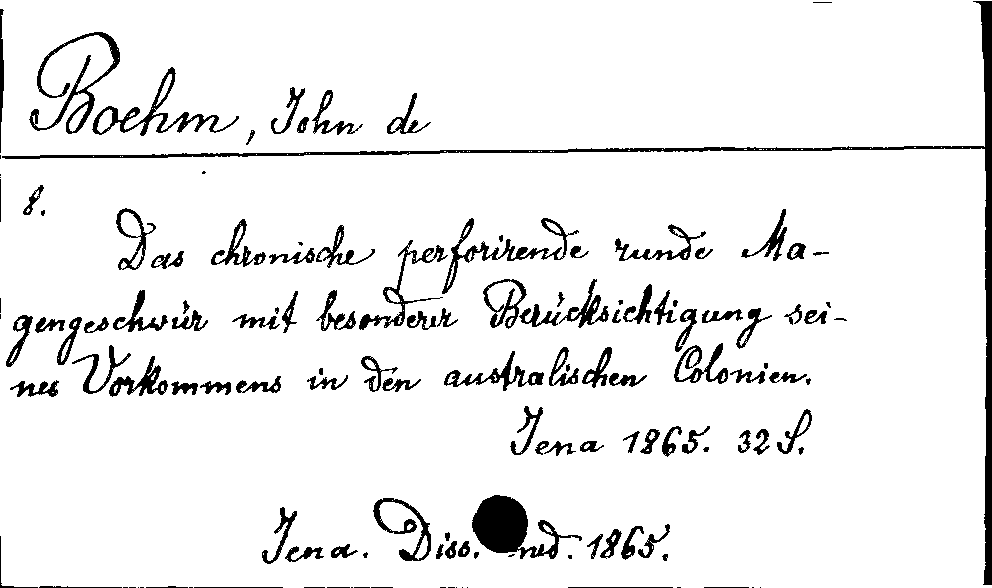 Boehm, John de
8.
Das chronische perforirende runde Ma-
gengeschwür mit besonderer Berücksichtigung sei-
nes Vorkommens in den australischen Colonien.
Jena 1865. 32 S.
Jena. Diss. med. 1865.